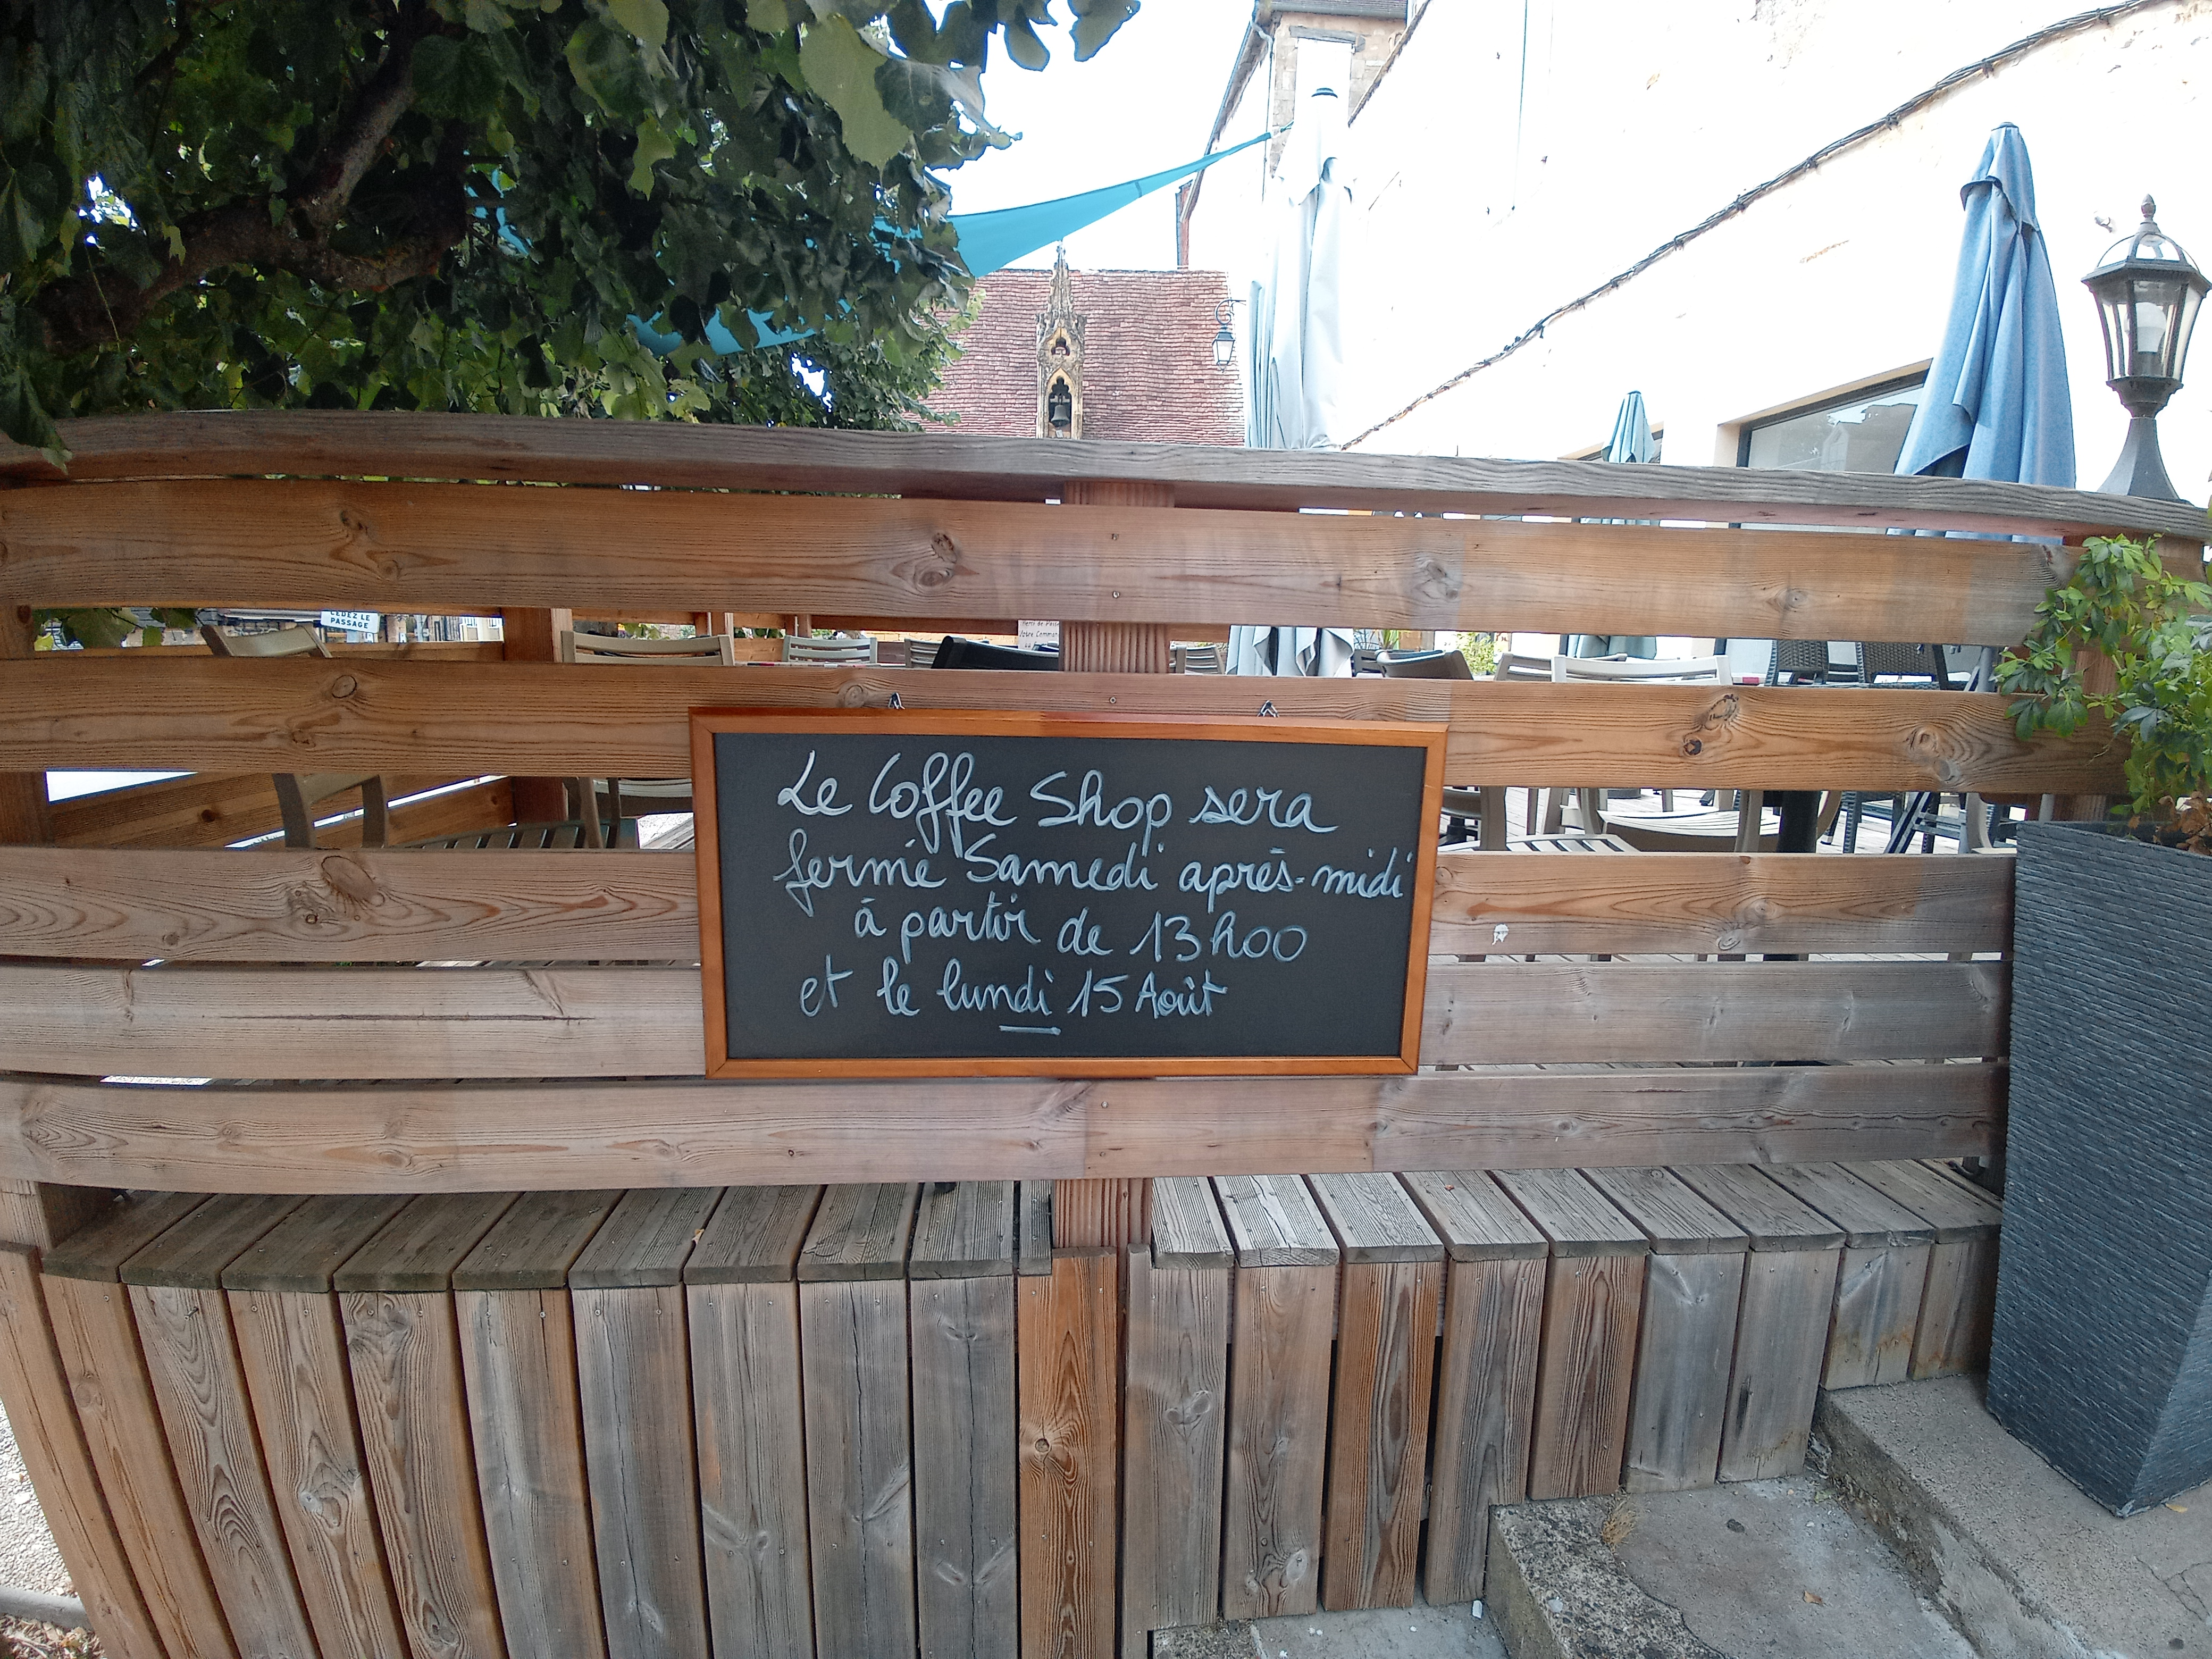 CEDEZ LE
PASSAGE
Le Coffee Shop sera
fermé Samedi après-midi
à partir de 13h00
et le lundi 15 Août